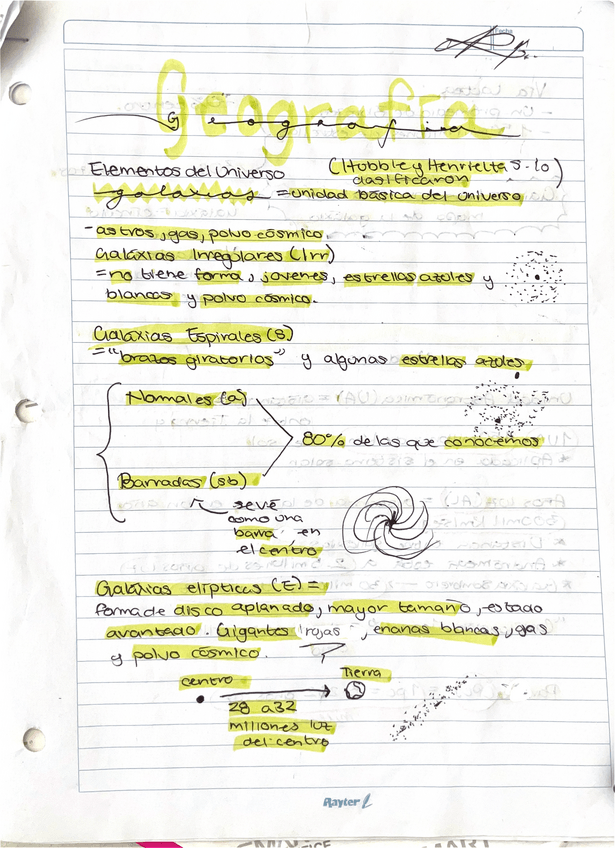 Fecha
Geografía
Geografia
Elementos del Universo
(Hubble y Henrietta S. lo
clasificaron)
galaxias = unidad básica del Universo
- astros, gas, polvo cósmico
Galaxias Irregulares (Irr)
= no tiene forma, jovenes, estrellas azules y
blancas y polvo cosmico.
Galaxias Espirales (S)
= "brazos giratorios" y algunas estrellas azules
Normales (a)
80% de las que conocemos
Barradas (sb)
se ve
como una
barra en
el centro
Galaxias elípticas (E) =
forma de disco aplanado, mayor tamaño, estado
avanzado. Gigantes rojas, enanas blancas, gas
y polvo cósmico.
centro
Tierra
28 a 32
millones luz
del centro
Rayter